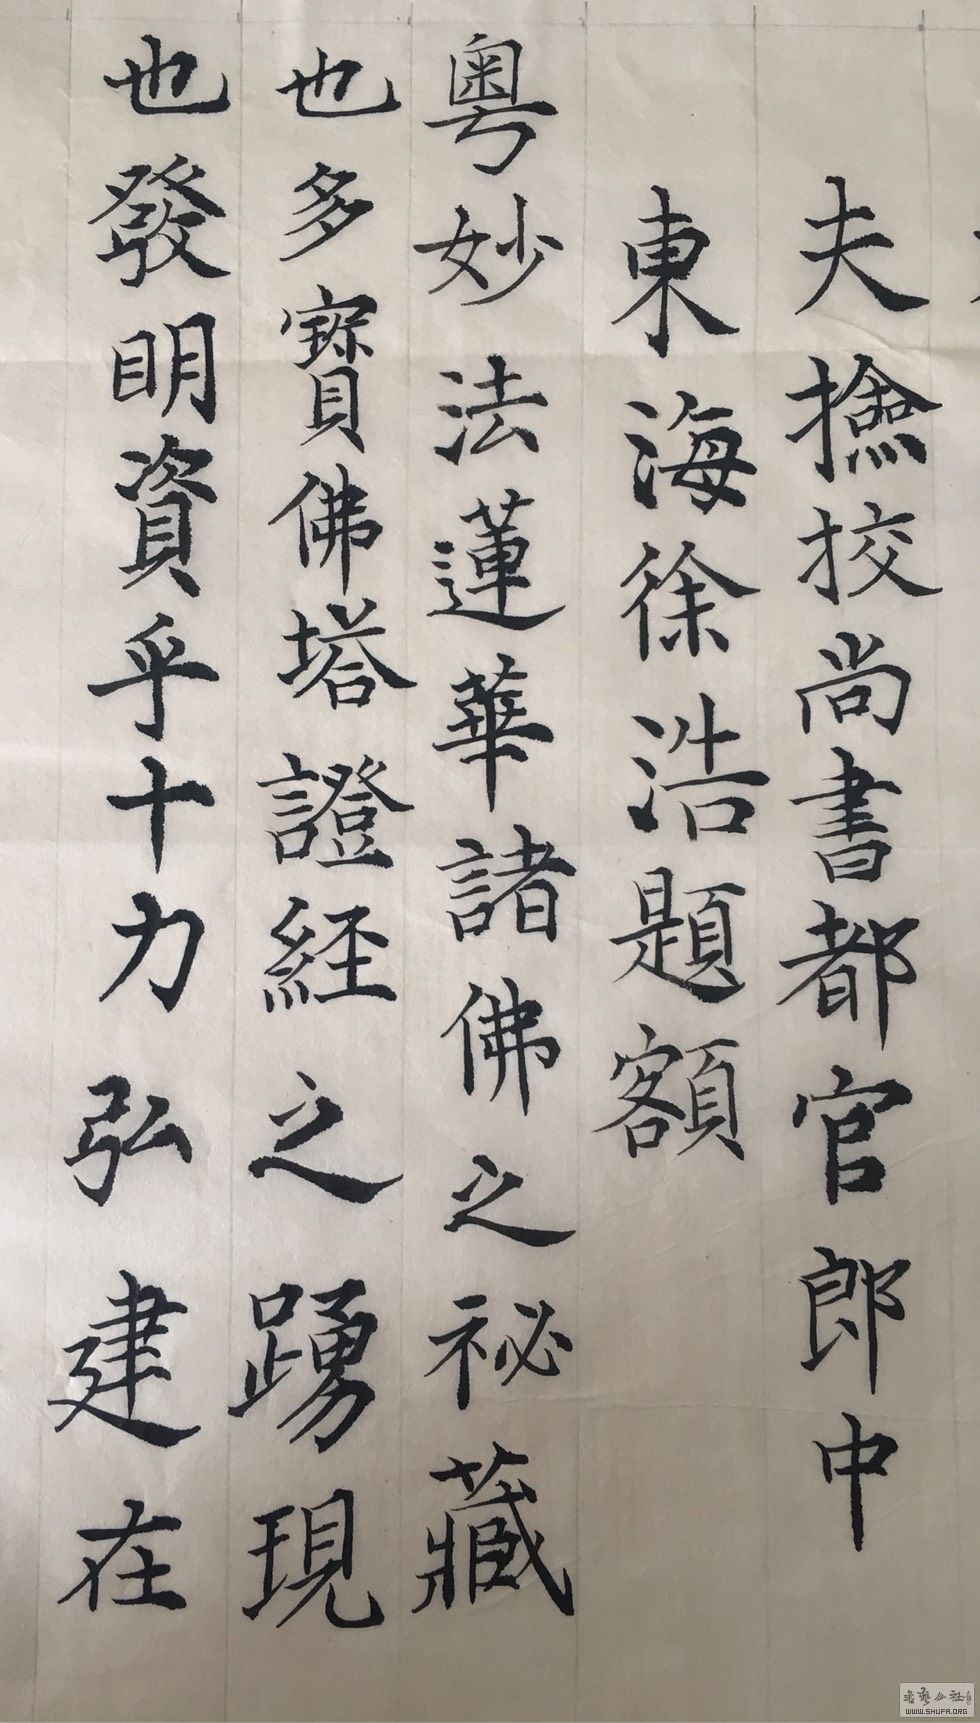 夫撿挍尚書都官郎中
東海徐浩題額
粤妙法蓮華諸佛之祕藏
也多寶佛塔證經之踴現
也發明資乎十力弘建在
書藝公社
WWW.SHUFA.ORG